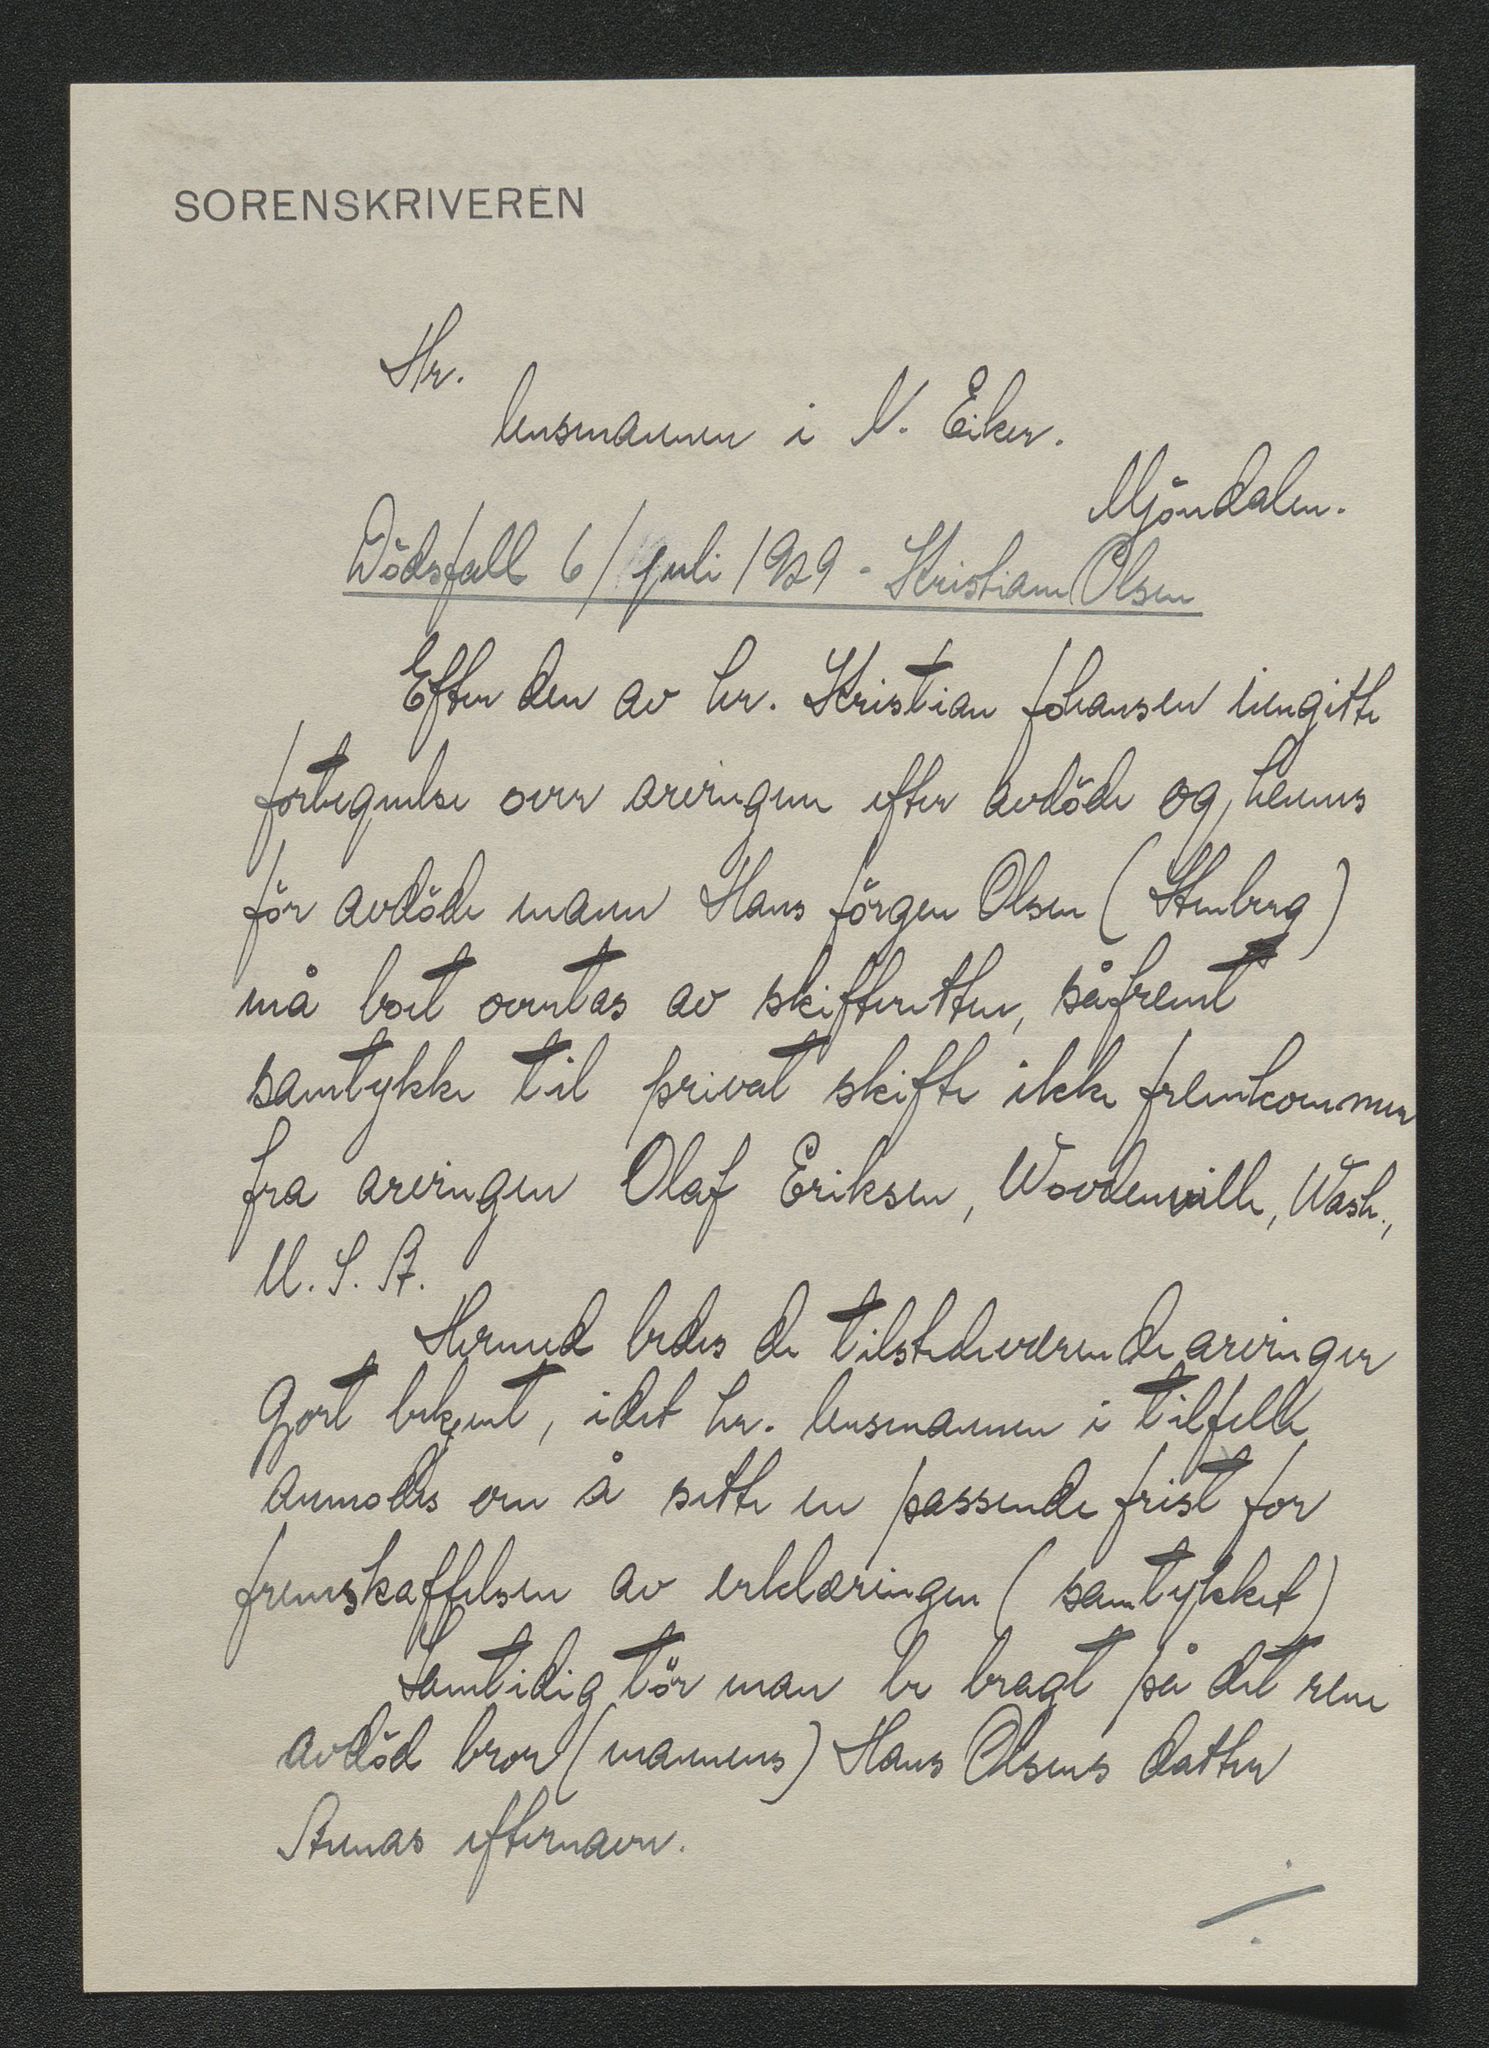 SORENSKRIVEREN
Hr.
lensmannen i N. Eiker.
Mjöndalen.
Dödsfall 6/ juli 1929 - Kristiane Olsen
Efter den av hr. Kristian Johansen inngitte
fortegnelse over arvingene efter avdöde og hennes
för avdöde mann Hans Jörgen Olsen (Stenberg)
må boet overtas av skifteretten, såfremt
samtykke til privat skifte ikke fremkommer
fra arvingen Olaf Eriksen, Woodenville, Wash.,
U. S. A.
Hermed bedes de tilstedeværende arvinger
gjort bekjent, idet hr. lensmannen i tilfelle
anmodes om å sette en passende frist for
fremskaffelsen av erklæringen (samtykket)
Samtidig tör man be bragt på det rene
avdöd bror (mannens) Hans Olsens datter
Annas efternavn.
./.